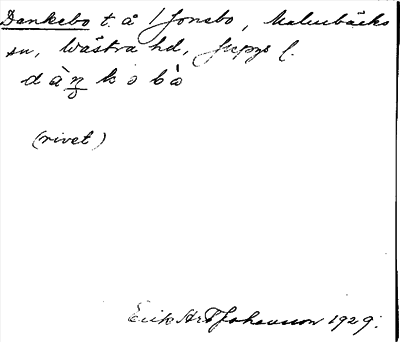 Dankebo t. å 1 Jonsbo, Malmbäcks
sn, Västra hd, Jkpgs l.
dàŋkobò
(rivet)
Erik Johansson 1929.